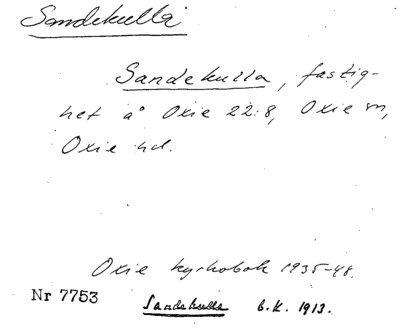 Sandekulla
Sandekulla, fastig-
het å Oxie 22:8, Oxie sn,
Oxie hd.
Oxie kyrkobok 1935-48.
Nr 7753
Sandekulla b.k. 1913.